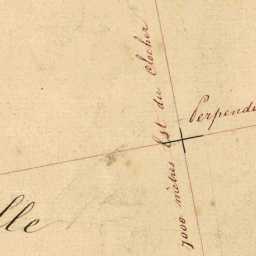 7000 mètres Est du Clocher
Perpendi
lle